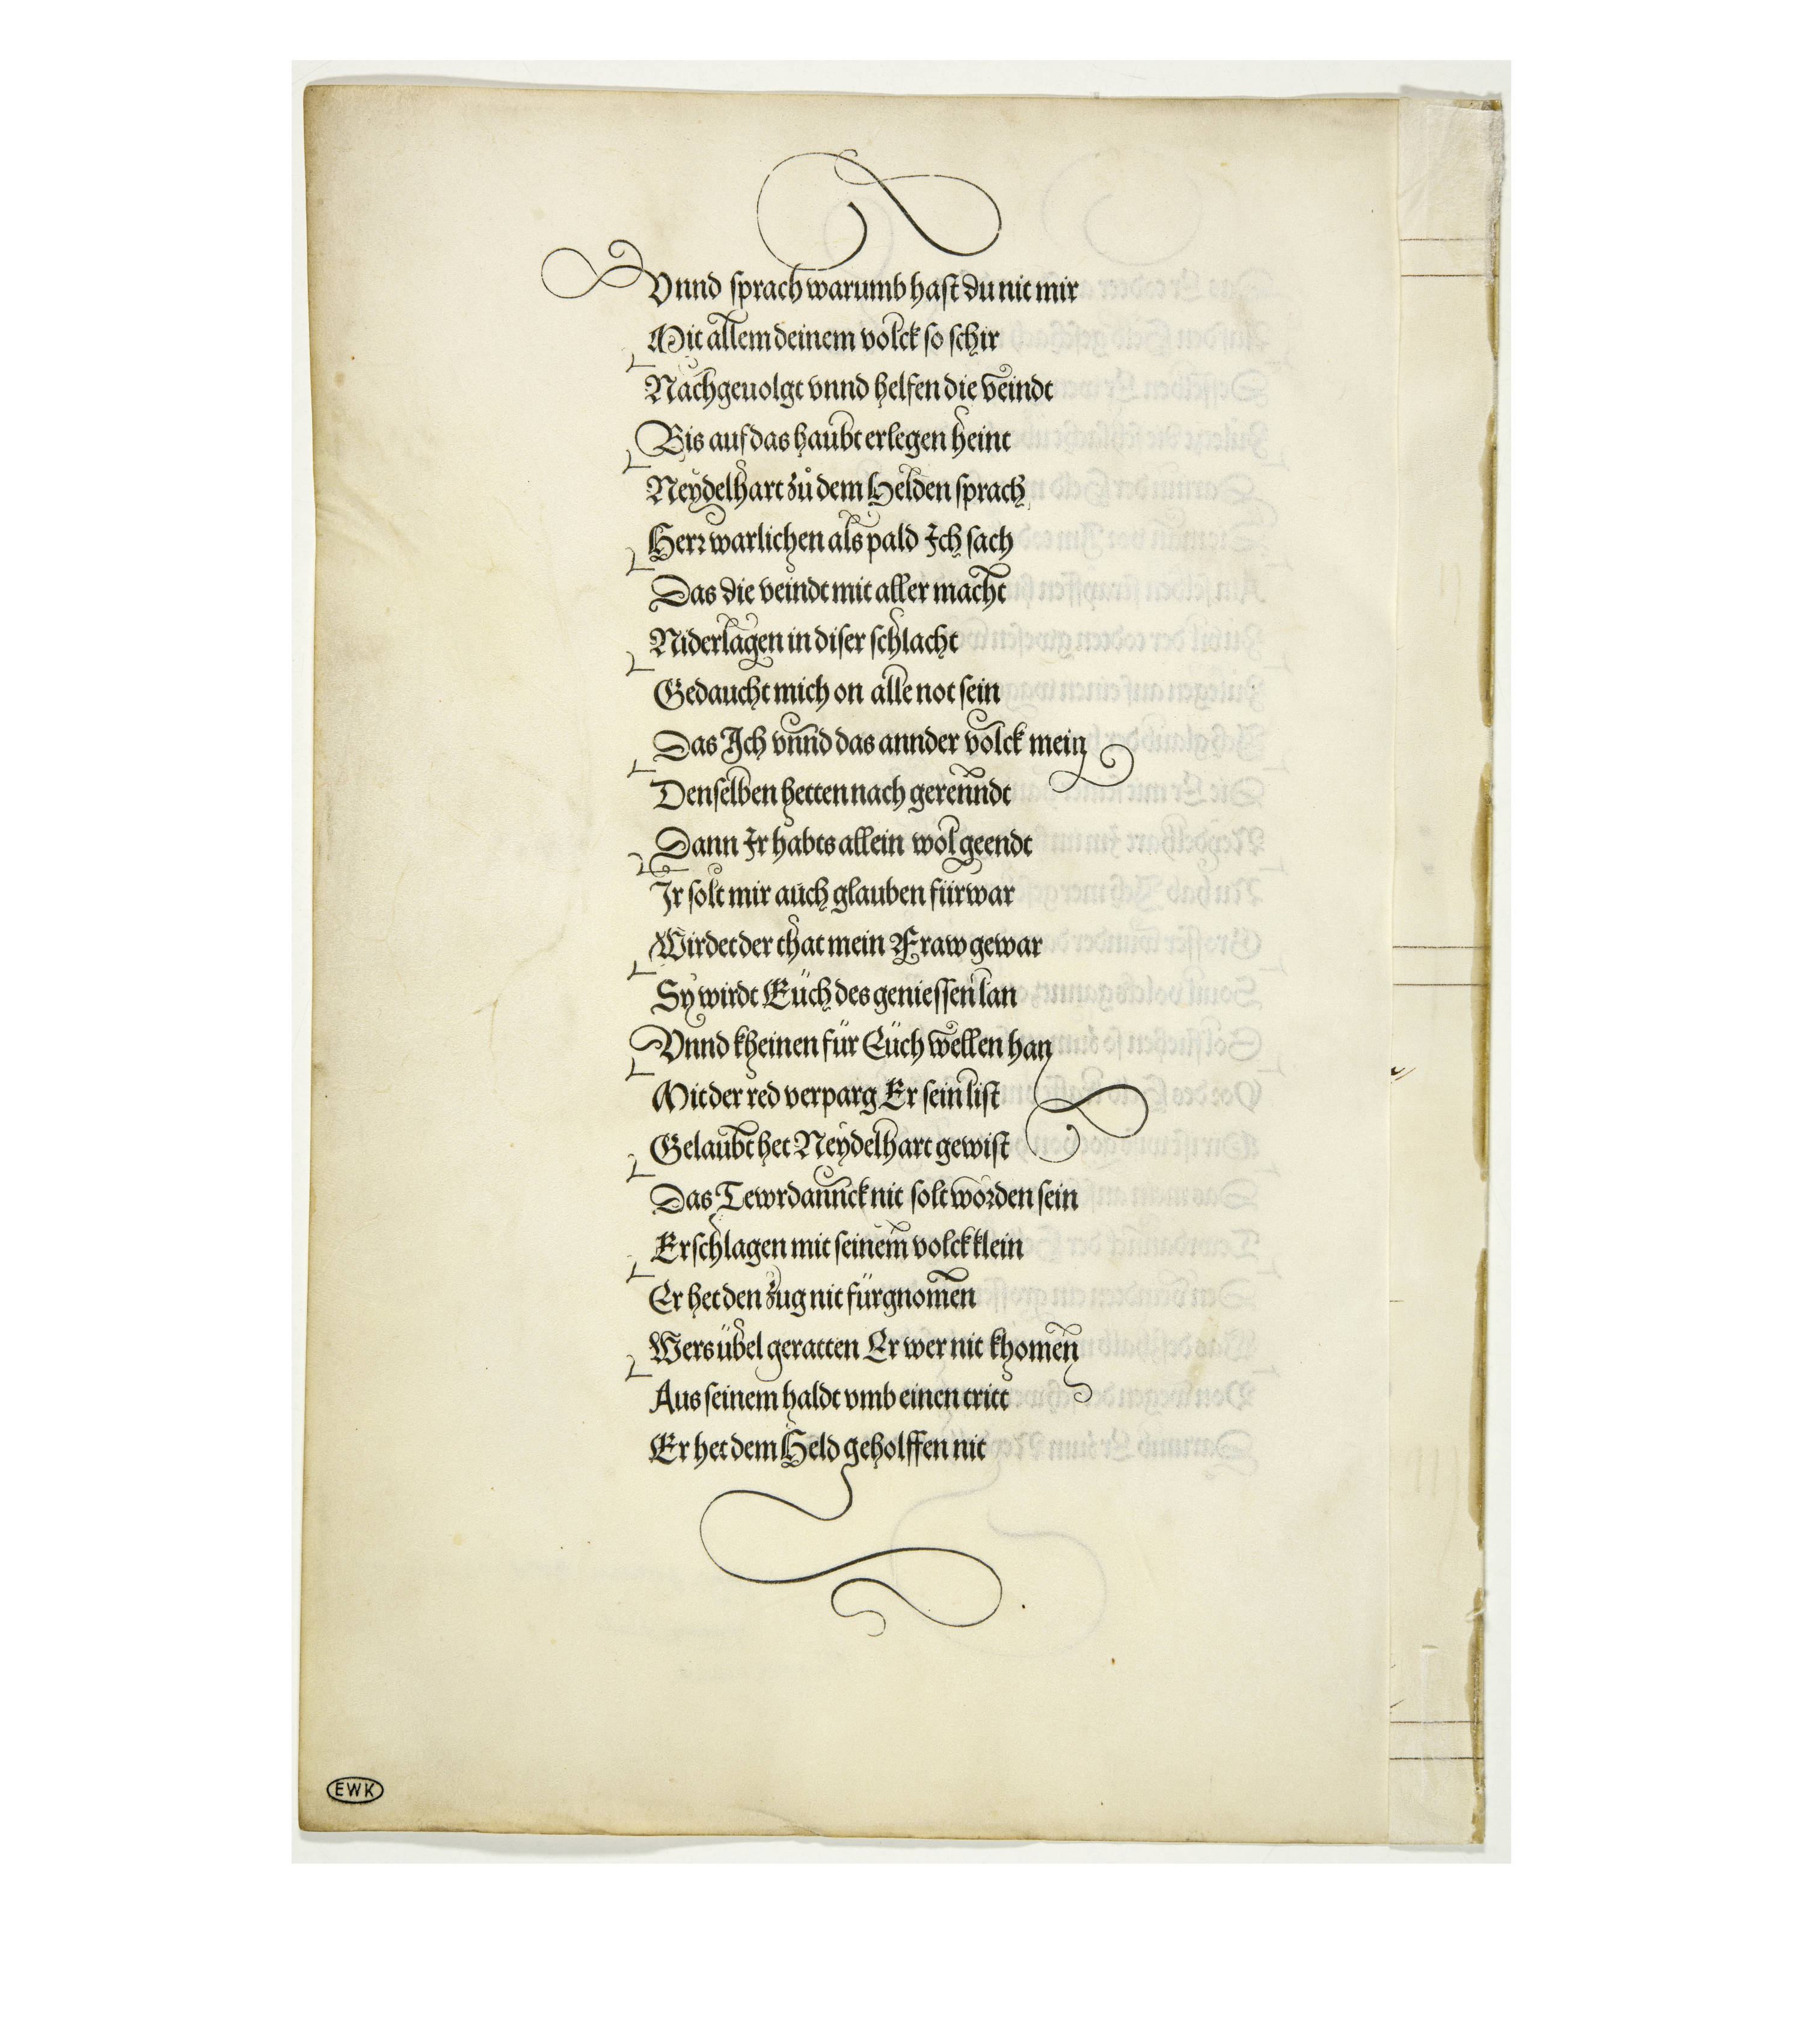 Vnnd sprach warumb hast du nit mir
Mit allem deinem volck so schir
Nachgeuolgt vnnd helfen die veindt
Bis auf das haubt erlegen heint
Neydelhart zů dem Helden sprach
Herr warlichen als pald Ich sach
Das die veindt mit aller macht
Niderlagen in diser schlacht
Gedaucht mich on alle not sein
Das Ich vnnd das annder volck mein
Denselben hetten nach gerenndt
Dann Ir habts allein wol geendt
Ir solt mir auch glauben fürwar
Wirdet der that mein Fraw gewar
Sy wirdt Eüch des geniessen lan
Vnnd kheinen für Eüch wellen han
Mit der red verparg Er sein list
Gelaubt het Neydelhart gewist
Das Tewrdannck nit solt worden sein
Erschlagen mit seinem volck klein
Er het den zug nit fürgnomen
Wers übel geratten Er wer nit khomen
Aus seinem haldt vmb einen tritt
Er het dem Held geholffen nit
EWK